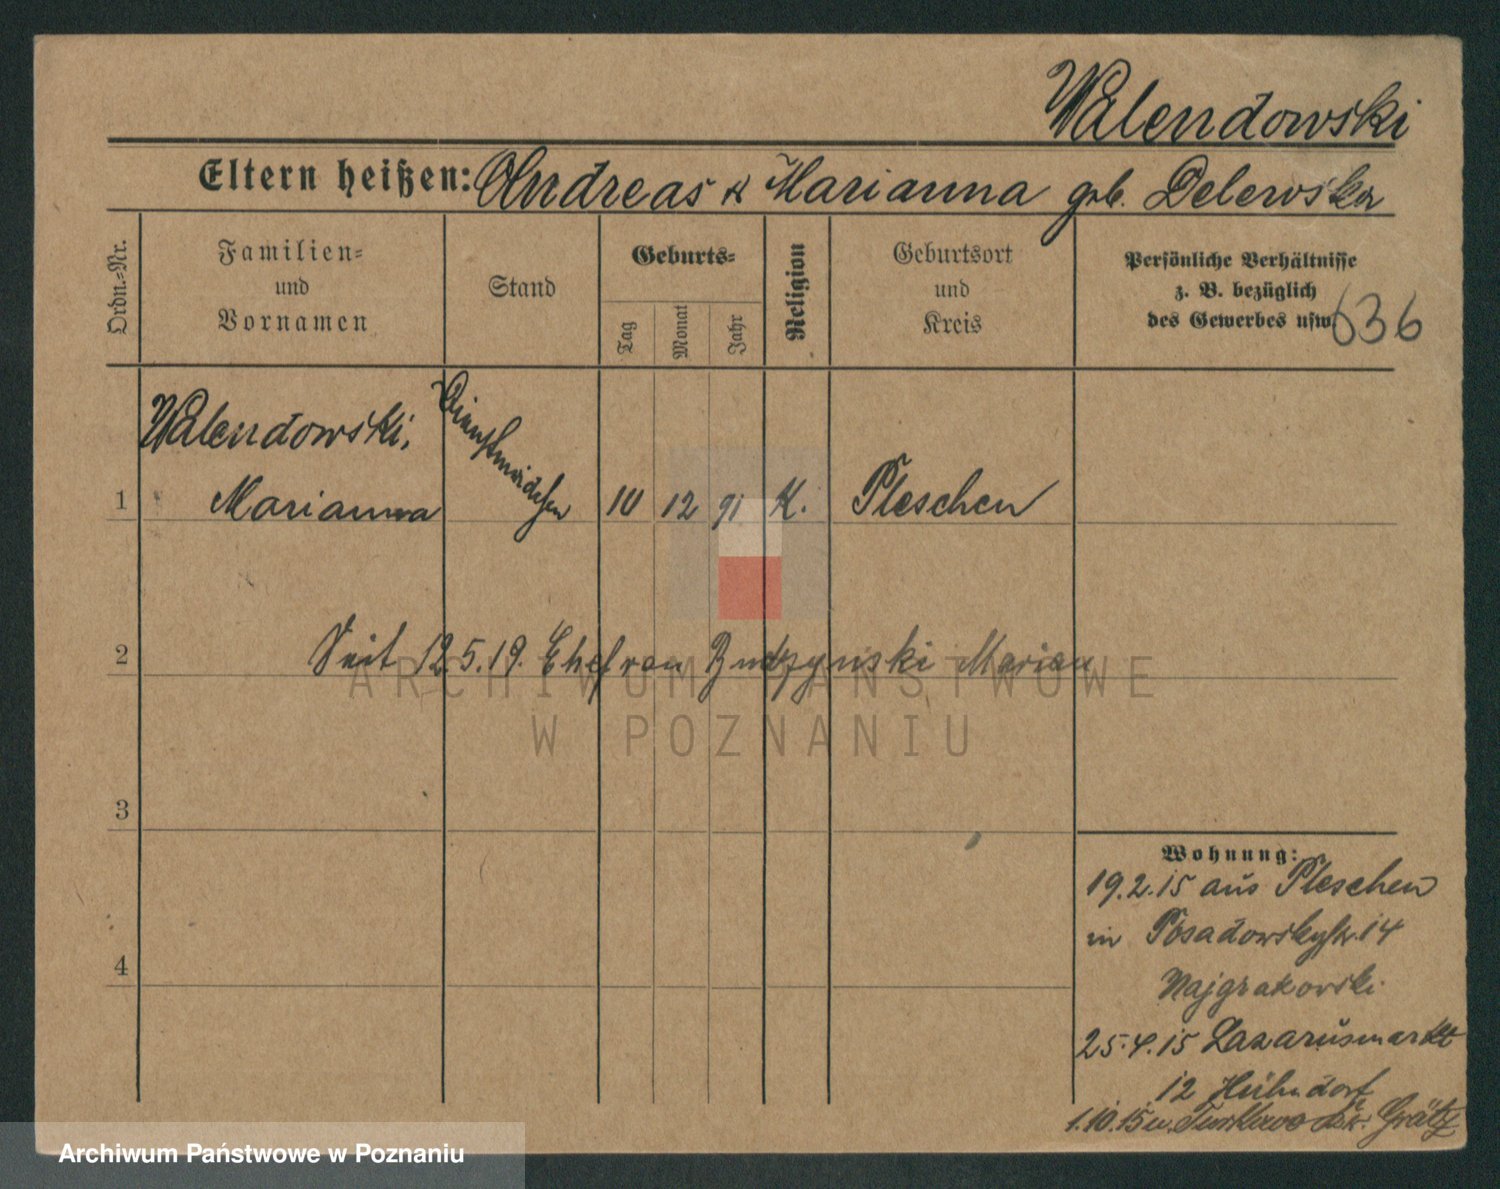 Walendowski
Eltern heißen: Andreas & Marianna geb. Delewska
Ordn.=Nr.
Familien=
und
Vornamen
Stand
Geburts=
Tag
Monat
Jahr
Religion
Geburtsort
und
Kreis
Persönliche Verhältnisse
z. B. bezüglich
des Gewerbes usw.
636
Walendowski,
1 Marianna Dienstmädchen 10 12 91 K. Pleschen
2 Seit 12.5.19. Ehefrau Budzynski Marian
3
4
Wohnung:
19.2.15 aus Pleschen
in Posadowskystr. 14
25.4.15 Lazarusmarkt
12 Hühndorf
1.10.15 n. Turkowo Kr. Grätz
ARCHIWUM PAŃSTWOWE
W POZNANIU
Archiwum Państwowe w Poznaniu